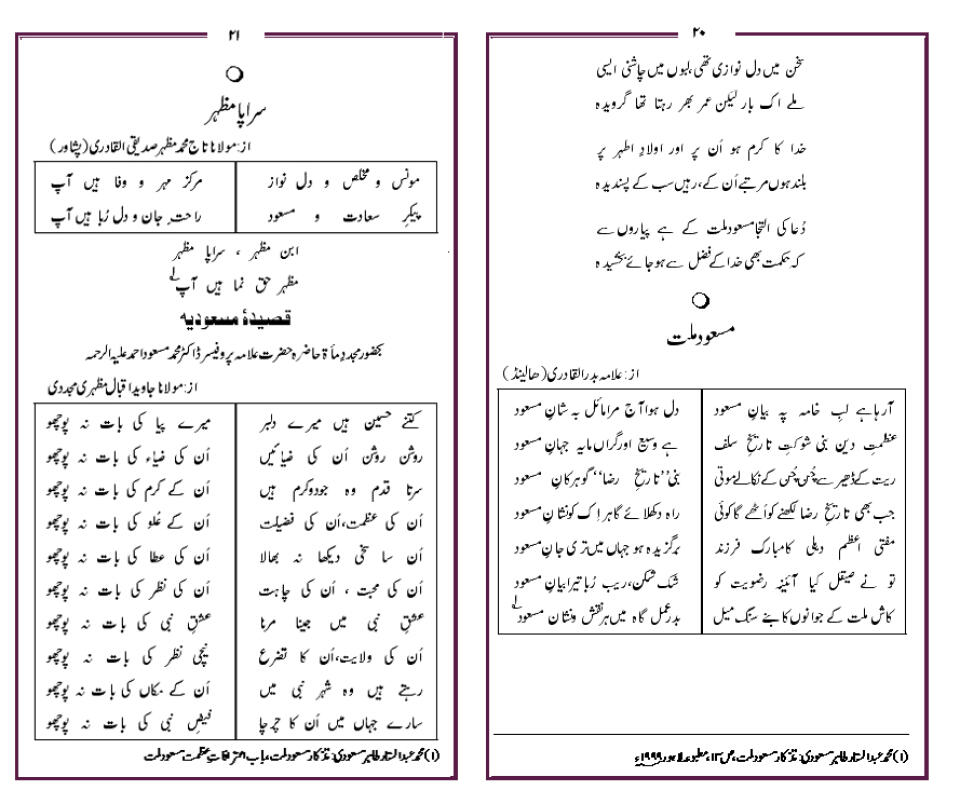 ۲۰
سخن میں دل نوازی تھی، لبوں میں چاشنی ایسی
ملے اک بار لیکن عمر بھر رہتا تھا گرویدہ
خدا کا کرم ہو اُن پر اور اولادِ اطہر پر
بلند ہوں مرتبے اُن کے، رہیں سب کے پسندیدہ
دُعا کی التجا مسعود ملت کے ہے پیاروں سے
کہ حکمت بھی خدا کے فضل سے ہو جائے بخشیدہ
مسعود ملت
از: علامہ بدر القادری (ھالینڈ)
آ رہا ہے لبِ خامہ پہ بیانِ مسعود دل ہوا آج مرا مائل بہ شانِ مسعود
عظمتِ دین بنی شوکتِ تاریخِ سلف ہے وسیع اور گراں مایہ جہانِ مسعود
ریت کے ڈھیر سے چُن چُن کے نکالے موتی بنی ’’تاریخِ رضا‘‘ گوہر کانِ مسعود
جب بھی تاریخِ رضا لکھنے کو اُٹھے گا کوئی راہ دکھلائے گا ہر اِک کو نشانِ مسعود
مفتی اعظم دہلی کا مبارک فرزند برگزیدہ ہو جہاں میں تری جانِ مسعود
تو نے صیقل کیا آئینہ رضویت کو شک شکن، ریب رُبا تیرا بیانِ مسعود
کاش ملت کے جوانوں کا بنے سنگ میل بدر عمل گاہ میں ہر نقش و نشانِ مسعود ۱
(۱) محمد عبدالستار طاہر مسعودی: تذکار مسعود ملت، ص ۱۳، مطبوعہ لاہور ۱۹۹۹ء
۲۱
سراپا مظہر
از: مولانا تاج محمد مظہر صدیقی القادری (پشاور)
مونس و مخلص و دل نواز مرکز مہر و وفا ہیں آپ
پیکرِ سعادت و مسعود راحت جان و دل رُبا ہیں آپ
ابن مظہر ، سراپا مظہر
مظہر حق نما ہیں آپ ۱
قصیدۂ مسعودیہ
بحضور مجدد مأۃ حاضرہ حضرت علامہ پروفیسر ڈاکٹر محمد مسعود احمد علیہ الرحمہ
از: مولانا جاوید اقبال مظہری مجددی
کتنے حسین ہیں میرے دلبر میرے پیا کی بات نہ پوچھو
روشن روشن اُن کی ضیائیں اُن کی ضیاء کی بات نہ پوچھو
سرتا قدم وہ جودوکرم ہیں اُن کے کرم کی بات نہ پوچھو
اُن کی عظمت، اُن کی فضیلت اُن کے عُلو کی بات نہ پوچھو
اُن سا سخی دیکھا نہ بھالا اُن کی عطا کی بات نہ پوچھو
اُن کی محبت ، اُن کی چاہت اُن کی نظر کی بات نہ پوچھو
عشقِ نبی میں جینا مرنا عشقِ نبی کی بات نہ پوچھو
اُن کی ولایت، اُن کا تضرع نیچی نظر کی بات نہ پوچھو
رہتے ہیں وہ شہر نبی میں اُن کے مکاں کی بات نہ پوچھو
سارے جہاں میں اُن کا چرچا فیضِ نبی کی بات نہ پوچھو
(۱) محمد عبدالستار طاہر مسعودی: تذکار مسعود ملت، باب اعترافاتِ عظمت مسعود ملت